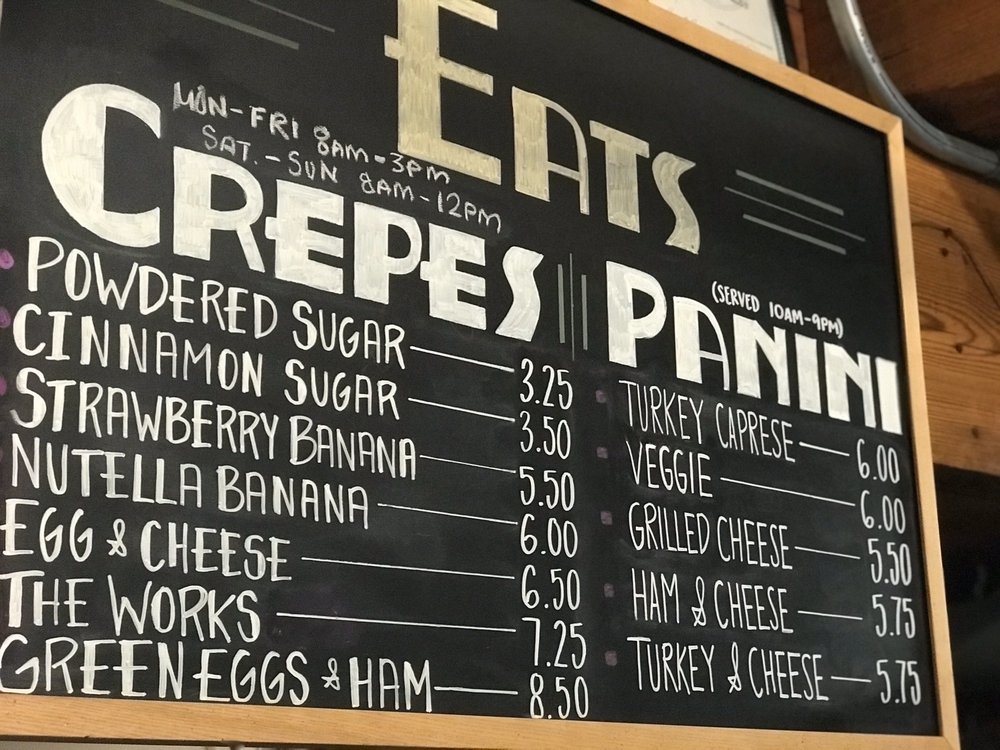 EATS
MON-FRI 8AM-3PM
SAT.-SUN 8AM-12PM
CREPES
POWDERED SUGAR 3.25
CINNAMON SUGAR 3.50
STRAWBERRY BANANA 5.50
NUTELLA BANANA 6.00
EGG & CHEESE 6.50
THE WORKS 7.25
GREEN EGGS & HAM 8.50
PANINI
(SERVED 10AM-9PM)
TURKEY CAPRESE 6.00
VEGGIE 6.00
GRILLED CHEESE 5.50
HAM & CHEESE 5.75
TURKEY & CHEESE 5.75